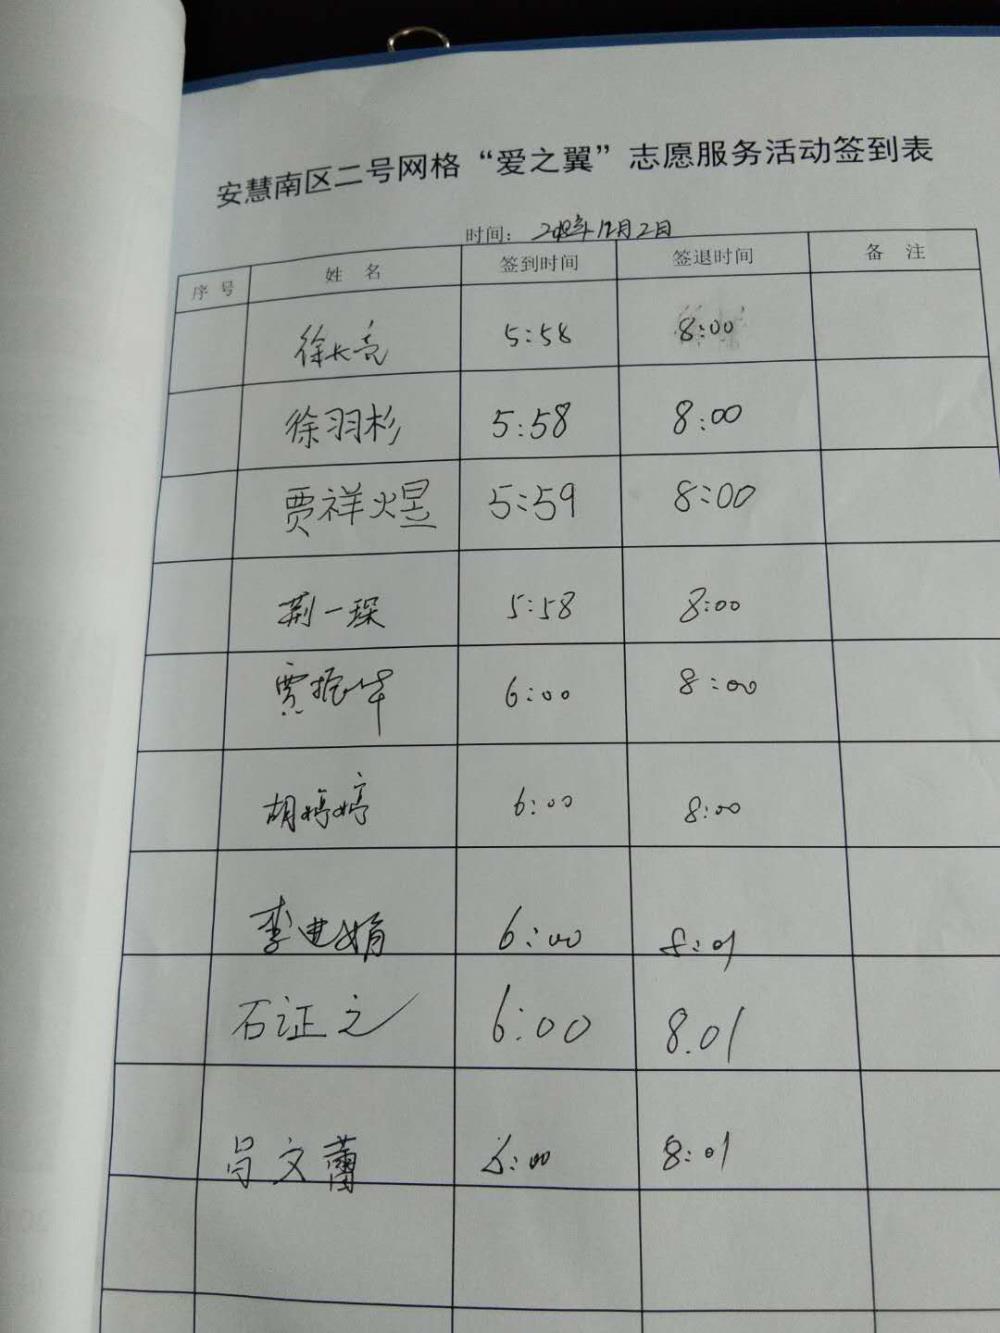 安慧南区二号网格“爱之翼”志愿服务活动签到表
时间： 12月2日
序号 姓名 签到时间 签退时间 备注
徐长亮 5:58 8:00
徐羽杉 5:58 8:00
贾祥煜 5:59 8:00
荆一琛 5:58 8:00
贾振华 6:00 8:00
胡婷婷 6:00 8:00
李 娟 6:00 8:01
石证之 6:00 8.01
吕文蕾 6:00 8:01